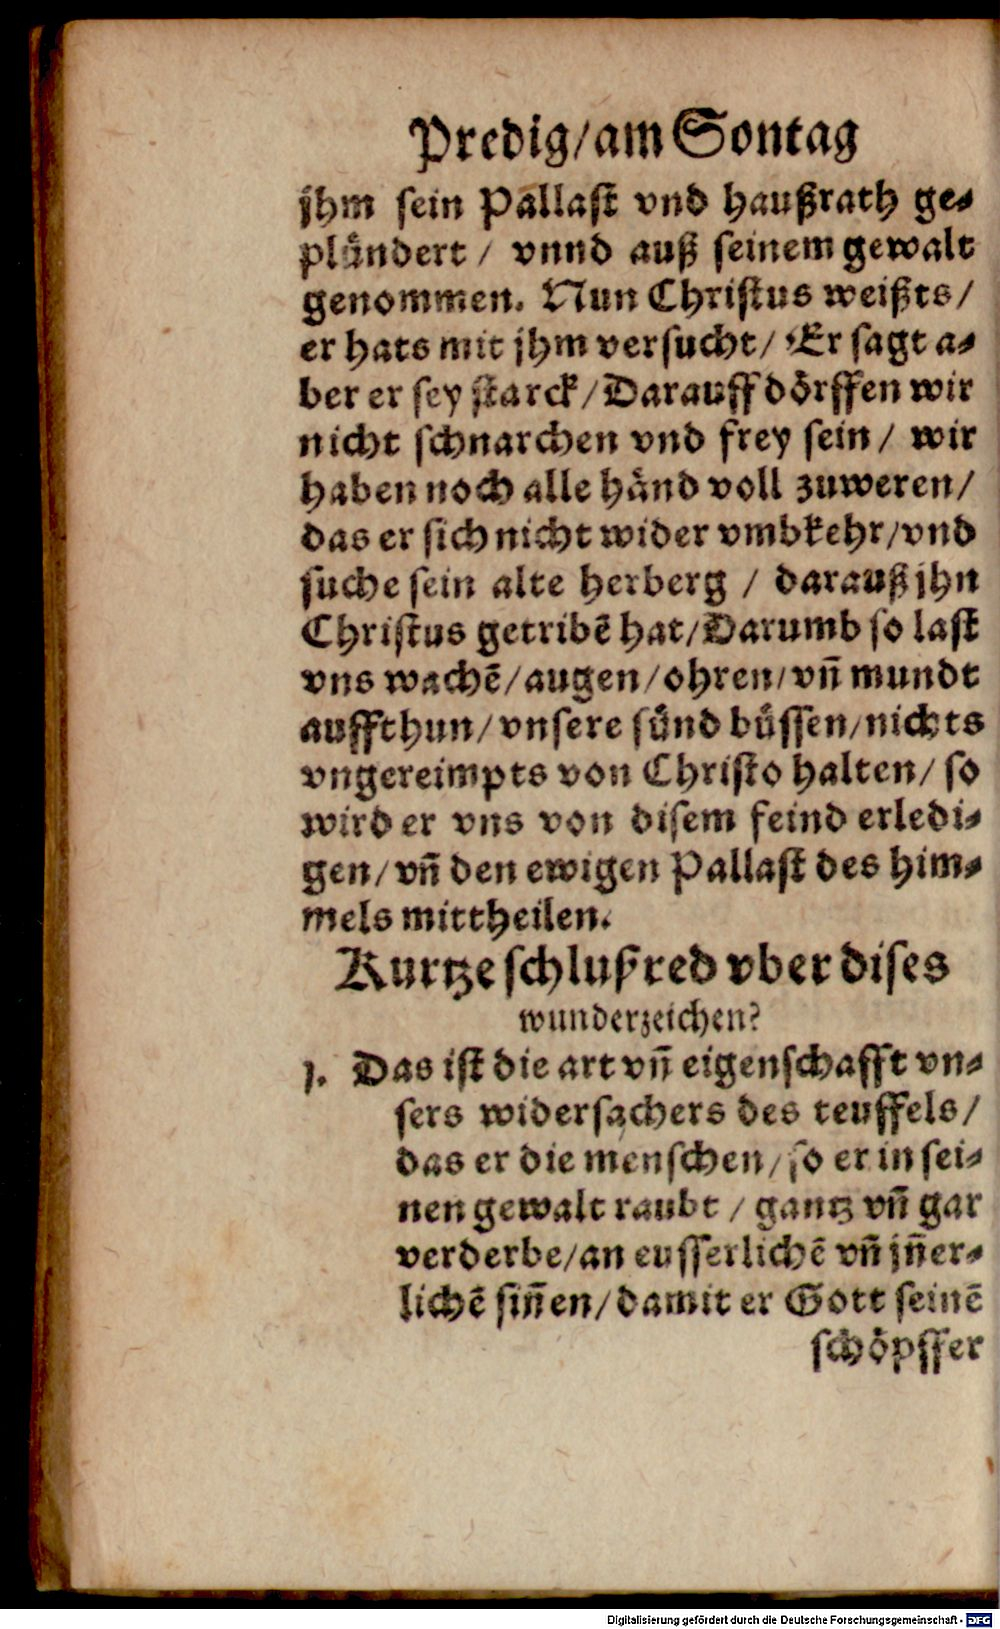 Predig/am Sontag
jhm sein Pallast vnd haußrath ge⸗
plündert / vnnd auß seinem gewalt
genommen. Nun Christus weißts/
er hats mit jhm versucht/ Er sagt a⸗
ber er sey starck/Darauff dörffen wir
nicht schnarchen vnd frey sein/ wir
haben noch alle händ voll zuweren/
das er sich nicht wider vmbkehr/vnd
suche sein alte herberg / darauß jhn
Christus getribē hat/Darumb so last
vns wachē/augen/ohren/vñ mundt
auffthun/vnsere sünd büssen/nichts
vngereimpts von Christo halten/ so
wird er vns von disem feind erledi⸗
gen/vñ den ewigen Pallast des him⸗
mels mittheilen.
Kurtze schlußred vber dises
wunderzeichen?
1. Das ist die art vñ eigenschafft vn⸗
sers widersachers des teuffels/
das er die menschen/so er in sei⸗
nen gewalt raubt / gantz vñ gar
verderbe/an eusserlichē vñ jñer⸗
lichē siñen/damit er Gott seinē
schöpffer
Digitalisierung gefördert durch die Deutsche Forschungsgemeinschaft - DFG